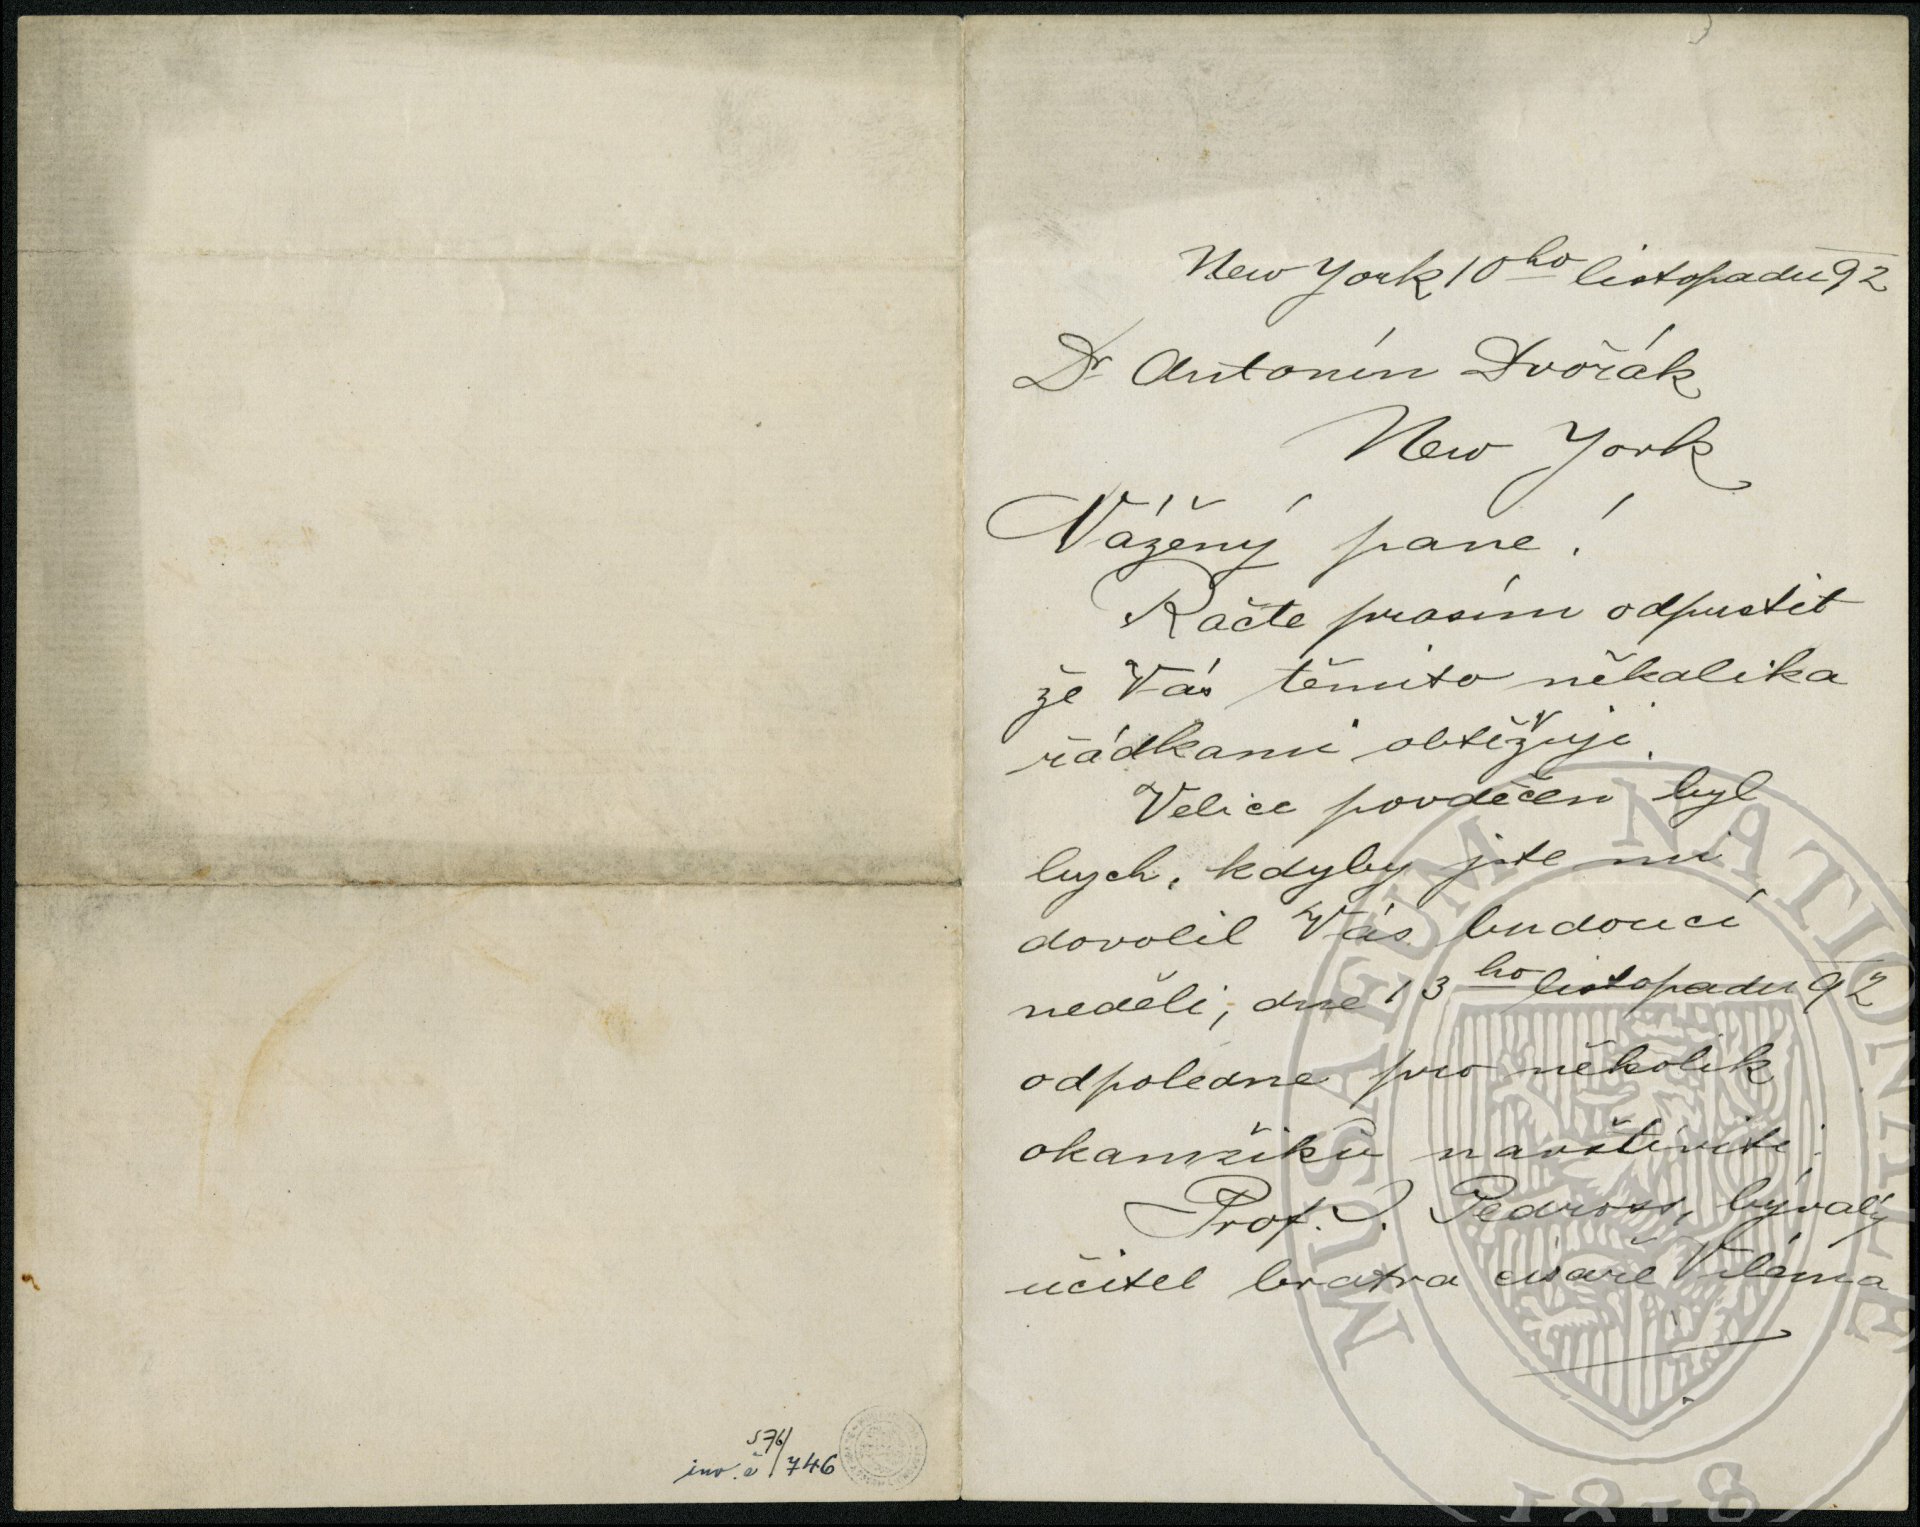 New York 10ho listopadu 92
Dr Antonín Dvořák
New York
Vážený pane!
Račte prosím odpustit
že Vás těmito několika
řádkami obtěžuji.
Velice povděčen byl
bych, kdyby jste mi
dovolil Vás budoucí
neděli, dne 13ho listopadu 92
odpoledne pro několik
okamžiků navštíviti.
Prof. J. Pedross, bývalý
učitel bratra císaře Viléma
576/
inv. č /746
MUSAEUM NATIONALE
1818